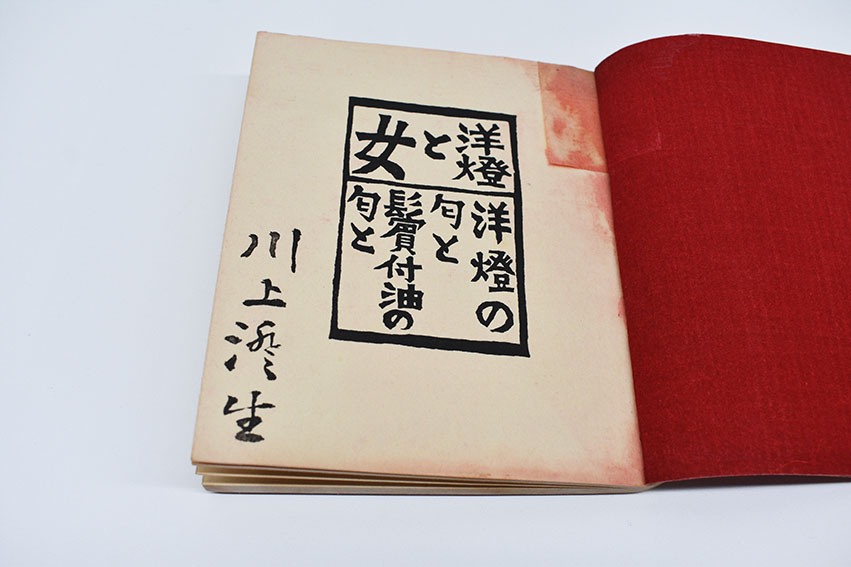 洋燈
と
女
洋燈の
匂と
鬂付油の
匂と
川上澄生